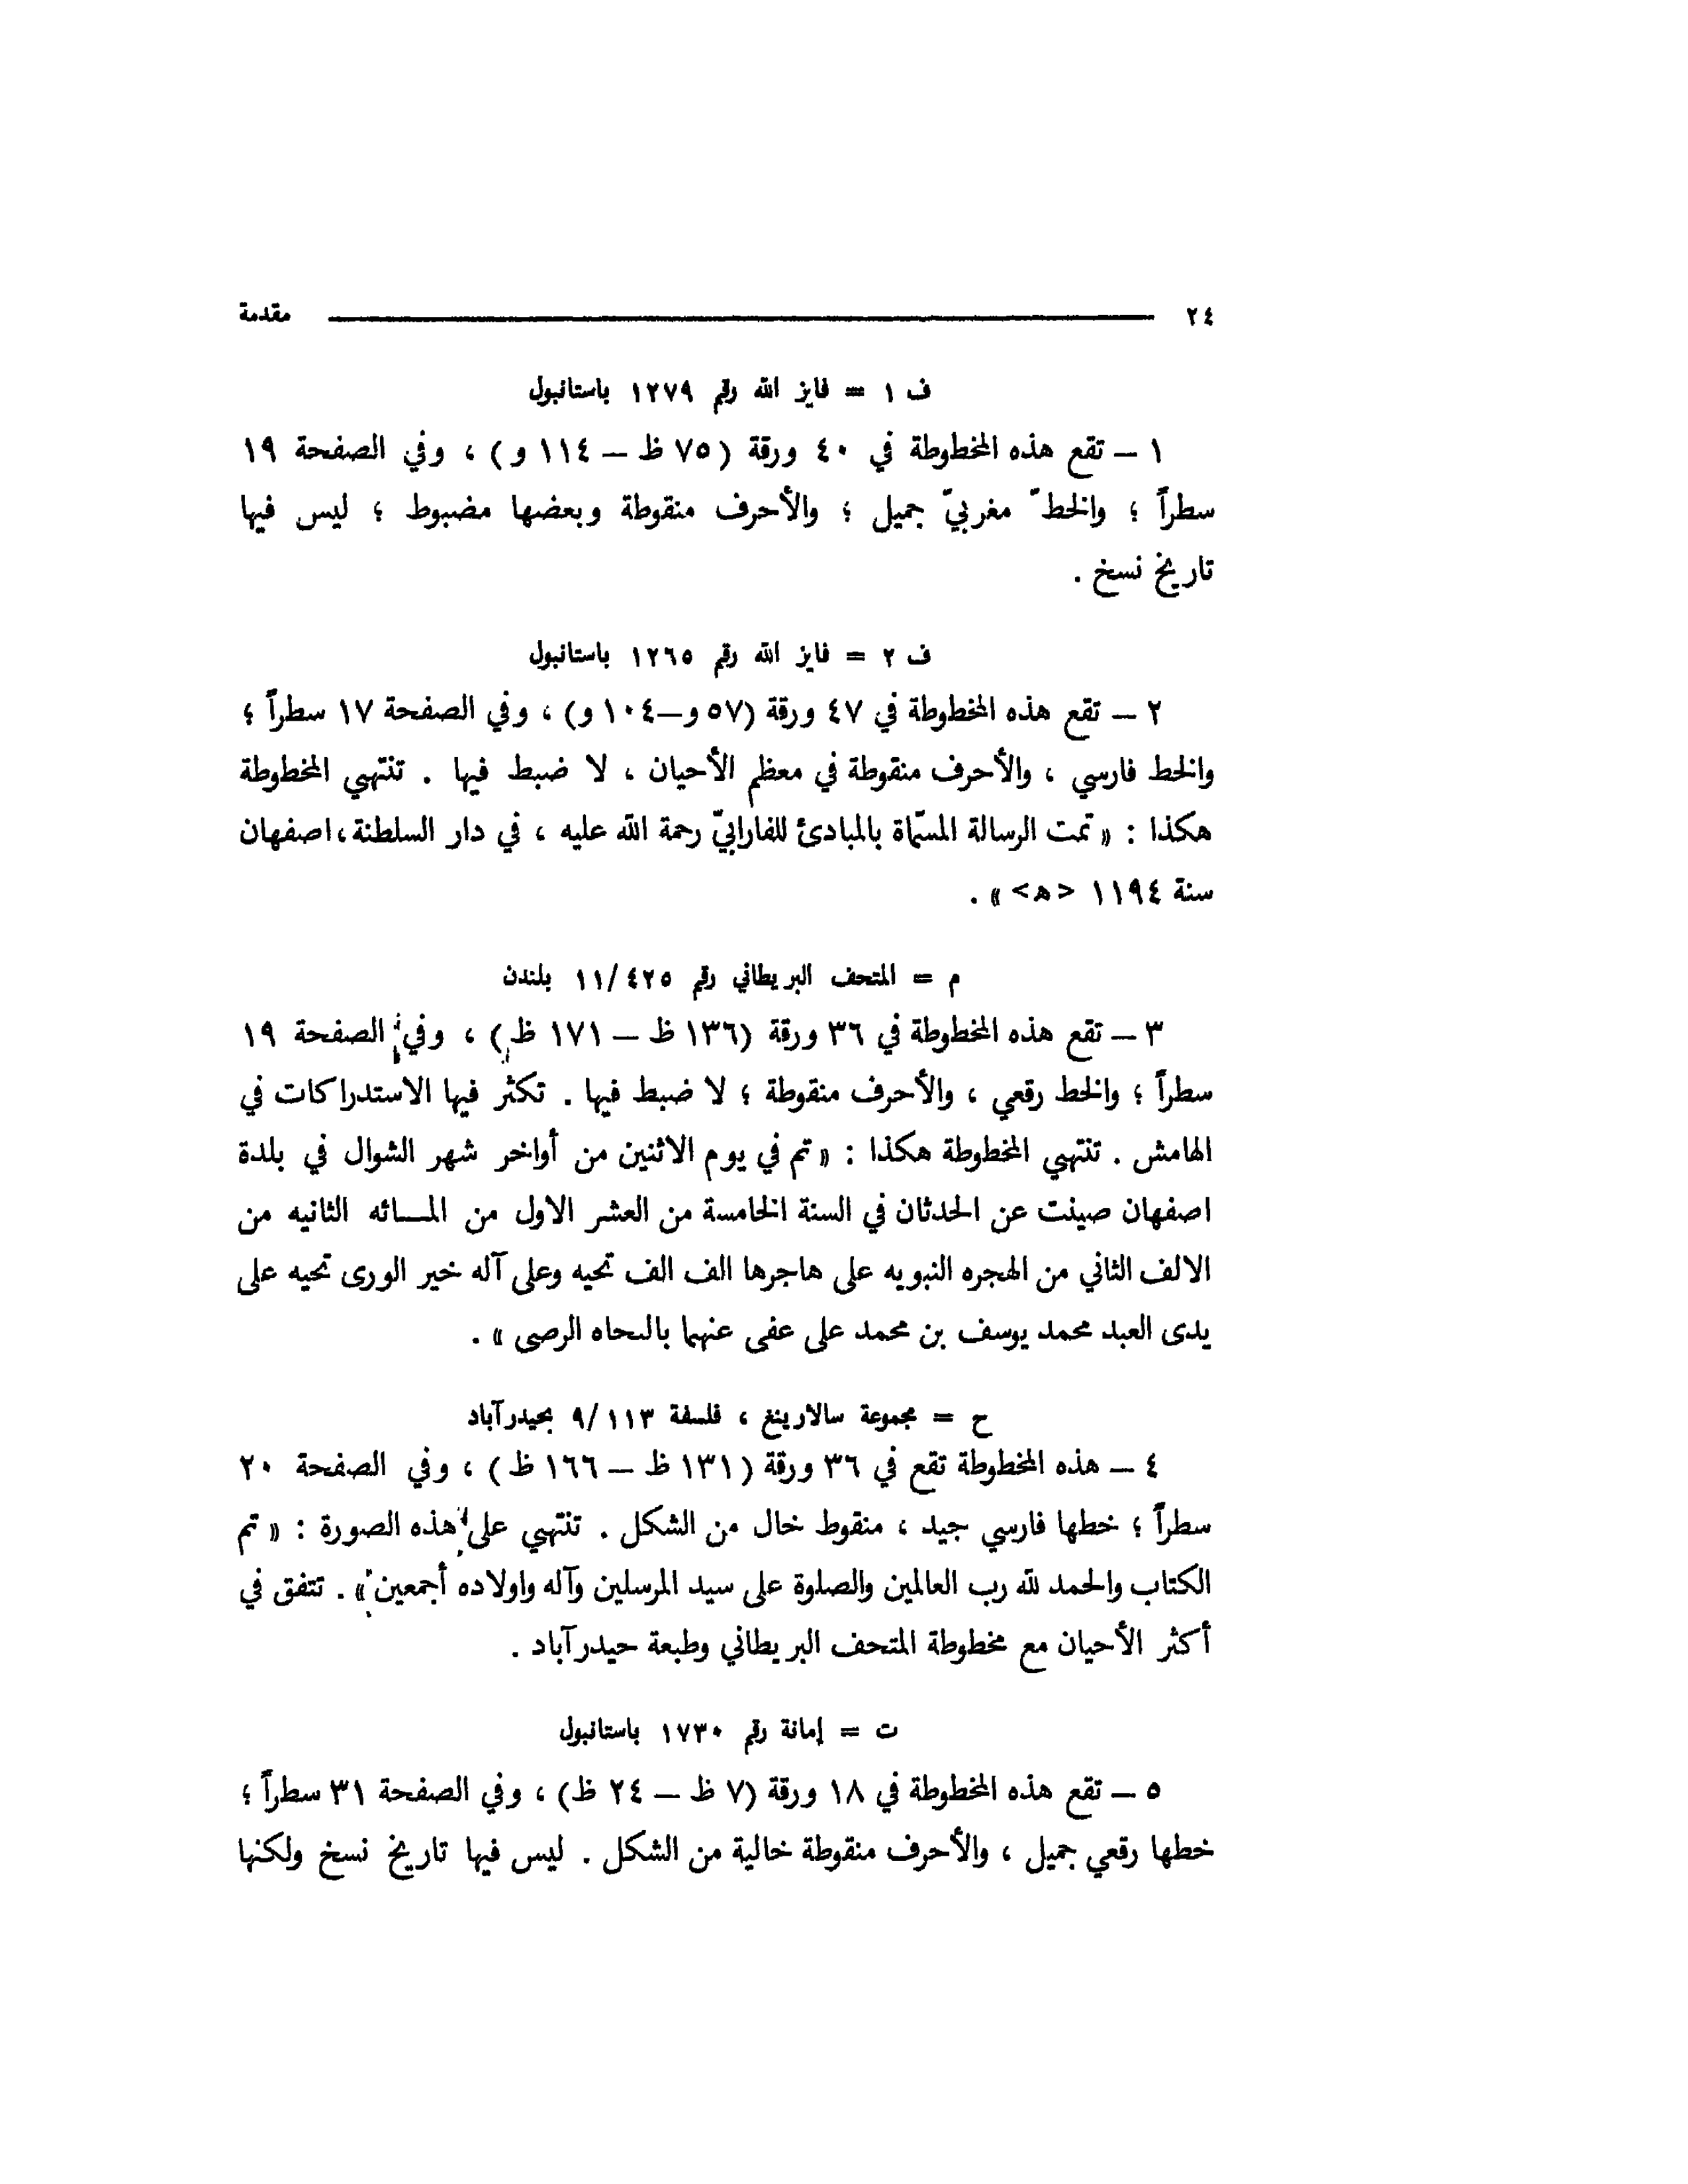 ٢٤ مقدمة
ف ١ = فايز الله رقم ١٢٧٩ باستانبول
١ – تقع هذه المخطوطة في ٤٠ ورقة ( ٧٥ ظ – ١١٤ و ) ، وفي الصفحة ١٩
سطراً ؛ والخطّ مغربيّ جميل ؛ والأحرف منقوطة وبعضها مضبوط ؛ ليس فيها
تاريخ نسخ .
ف ٢ = فايز الله رقم ١٢٦٥ باستانبول
٢ – تقع هذه المخطوطة في ٤٧ ورقة (٥٧ و–١٠٤ و) ، وفي الصفحة ١٧ سطراً ؛
والخط فارسي ، والأحرف منقوطة في معظم الأحيان ، لا ضبط فيها . تنتهي المخطوطة
هكذا : « تمت الرسالة المسمّاة بالمبادئ للفارابيّ رحمة الله عليه ، في دار السلطنة ، اصفهان
سنة ١١٩٤ <ه> » .
م = المتحف البريطاني رقم ٤٢٥/١١ بلندن
٣ – تقع هذه المخطوطة في ٣٦ ورقة (١٣٦ ظ – ١٧١ ظ) ، وفي الصفحة ١٩
سطراً ؛ والخط رقعي ، والأحرف منقوطة ؛ لا ضبط فيها . تكثر فيها الاستدراكات في
الهامش . تنتهي المخطوطة هكذا : « تم في يوم الاثنين من أواخر شهر الشوال في بلدة
اصفهان صينت عن الحدثان في السنة الخامسة من العشر الاول من المــائه الثانيه من
الالف الثاني من الهجره النبويه على هاجرها الف الف تحيه وعلى آله خير الورى تحيه على
يدى العبد محمد يوسف بن محمد على عفى عنهما بالىحاه الرصى » .
ح = مجموعة سالارينغ ، فلسفة ١١٣/٩ بحيدرآباد
٤ – هذه المخطوطة تقع في ٣٦ ورقة ( ١٣١ ظ – ١٦٦ ظ ) ، وفي الصفحة ٢٠
سطراً ؛ خطها فارسي جيد ، منقوط خال من الشكل . تنتهي على هذه الصورة : « تم
الكتاب والحمد لله رب العالمين والصلوة على سيد المرسلين وآله واولاده أجمعين » . تتفق في
أكثر الأحيان مع مخطوطة المتحف البريطاني وطبعة حيدرآباد .
ت = إمانة رقم ١٧٣٠ باستانبول
٥ – تقع هذه المخطوطة في ١٨ ورقة (٧ ظ – ٢٤ ظ) ، وفي الصفحة ٣١ سطراً ؛
خطها رقعي جميل ، والأحرف منقوطة خالية من الشكل . ليس فيها تاريخ نسخ ولكنها